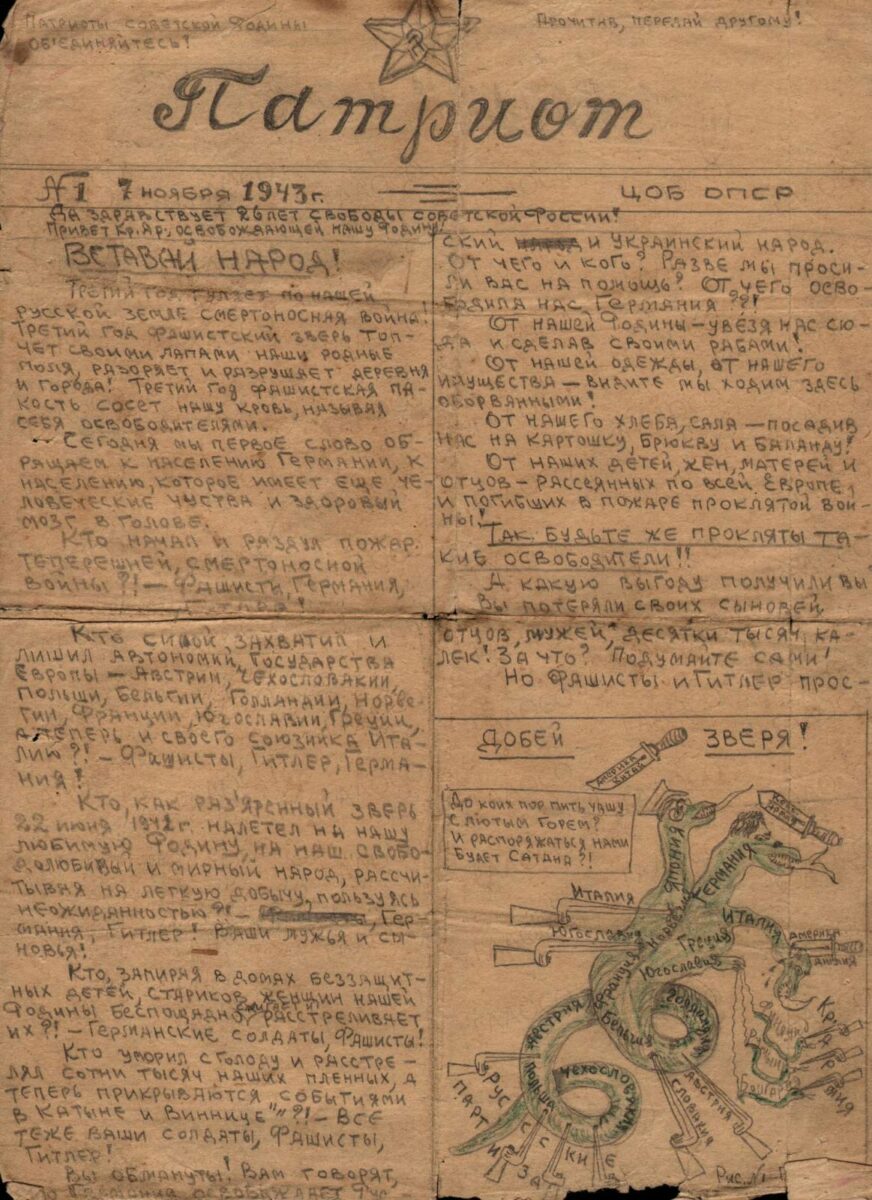 Патриоты Советской Родины
об'единяйтесь!
Прочитив, передай другому!
Патриот
№1 7 ноября 1943г.
ЦОБ ОПСР
Да здравствует 26 лет свободы Советской России!
Привет Кр. Ар., освобождающей нашу Родину!
Вставай народ!
Третий год гуляет по нашей
русской земле смертоносная война!
Третий год фашистский зверь топ-
чет своими лапами нашу родные
поля, разоряет и разрушает деревня
и города! Третий год фашистская па-
кость сосет нашу кровь, называя
себя освободителями.
Сегодня мы первое слово об-
ращаем к населению Германии, к
населению, которое имеет еще че-
ловеческие чуства и здоровый
мозг в голове.
Кто начал и раздул пожар
теперешней, смертоносной
войны?! — Фашисти, Германия,
Кто силой захватил и
лишил автономий, государства
Европы — Австрии, Чехословакии,
Польши, Бельгии, Голландии, Норве-
гии, Франции, Югославии, Греции,
а теперь и своего союзника Ита-
лию?! — Фашисты, Гитлер, Герма-
ния!
Кто, как раз'яренный зверь
22 июня 1941г. налетел на нашу
любимую Родину, на наш свобо-
долюбивый и мирный народ, рассчи-
тывня на легкую добычу, пользуясь
неожиданностью?! — Гер-
мания, Гитлер! Ваши мужья и сы-
новья!
Кто, запирая в домах беззащит-
ных детей, стариков, женщин нашей
Родины беспощадно расстреливает
их?! — Германские солдаты, фашисты!
Кто уморил с голоду и расстре-
лял сотни тысяч наших пленных, а
теперь прикрываются событиями
в Катыне и Виннице""?! — Все
теже ваши солдаты, фашисты,
Гитлер!
Вы обмануты! Вам говорят,
Германия освобождает
ский и украинский народ.
От чего и кого? Разве мы проси-
ли вас на помощь? От чего осво-
бодила нас Германия?!
От нашей Родины — увезя нас сю-
да и сделав своими рабами!
От нашей одежды, от нашего
имущества — видите мы ходим здесь
оборванными!
От нашего хлеба, сала — посадив
нас на картошку, брюкву и баланду!
От наших детей, жен, матерей и
отцов — рассеянных по всей Европе,
и погибших в пожаре проклятой вой-
ны!
Так будьте же прокляты та-
кие освободители!!
А какую выгоду получили вы
Вы потеряли своих сыновей
отцов, мужей, десятки тысяч ка-
лек! За что? Подумайте сами!
Но фашисты и Гитлер прос-
Добей зверя!
Америка
Китай
До коих пор пить чашу
с лютым горем?
И распоряжаться нами
будет Сатана?!
Япония
Германия
Италия
Югославия
Норвегия
Италия
Греция
Америка
Англия
Франция
Югославия
Австрия
Бельгия
Голландия
Польша
Чехословакия
Кр. Армия
Австрия
Словакия
Русские
Партизаны
Рис. №1